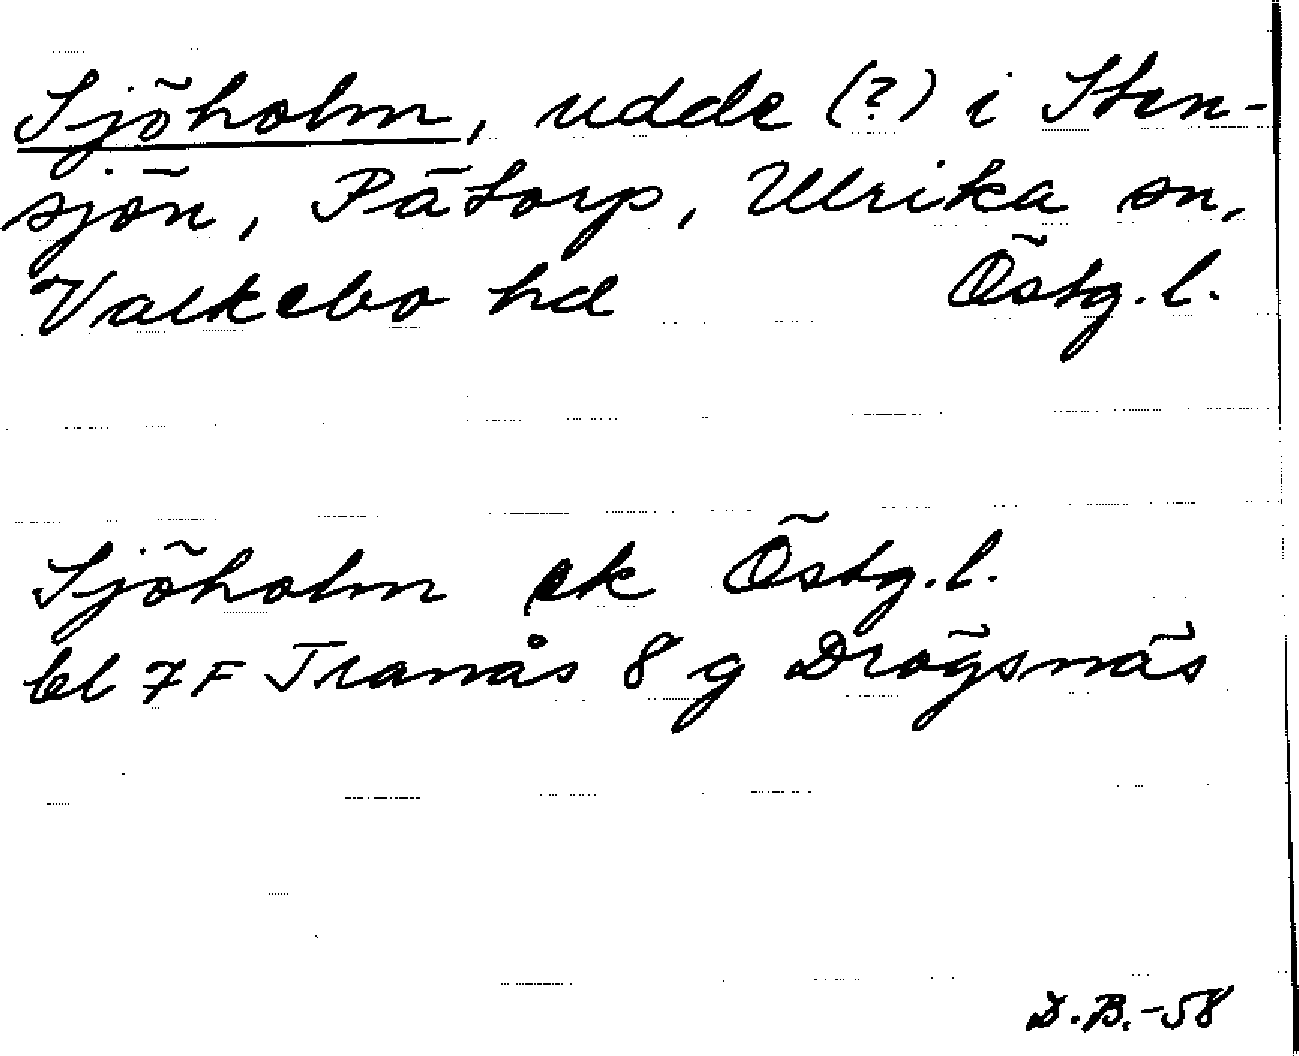 Sjöholm, udde (?) i Sten-
sjön, Påtorp, Ulrika sn,
Valkebo hd Östg. l.
Sjöholm ek Östg. l.
bl 7F Tranås 8 g Drögsnäs
D.B.-58